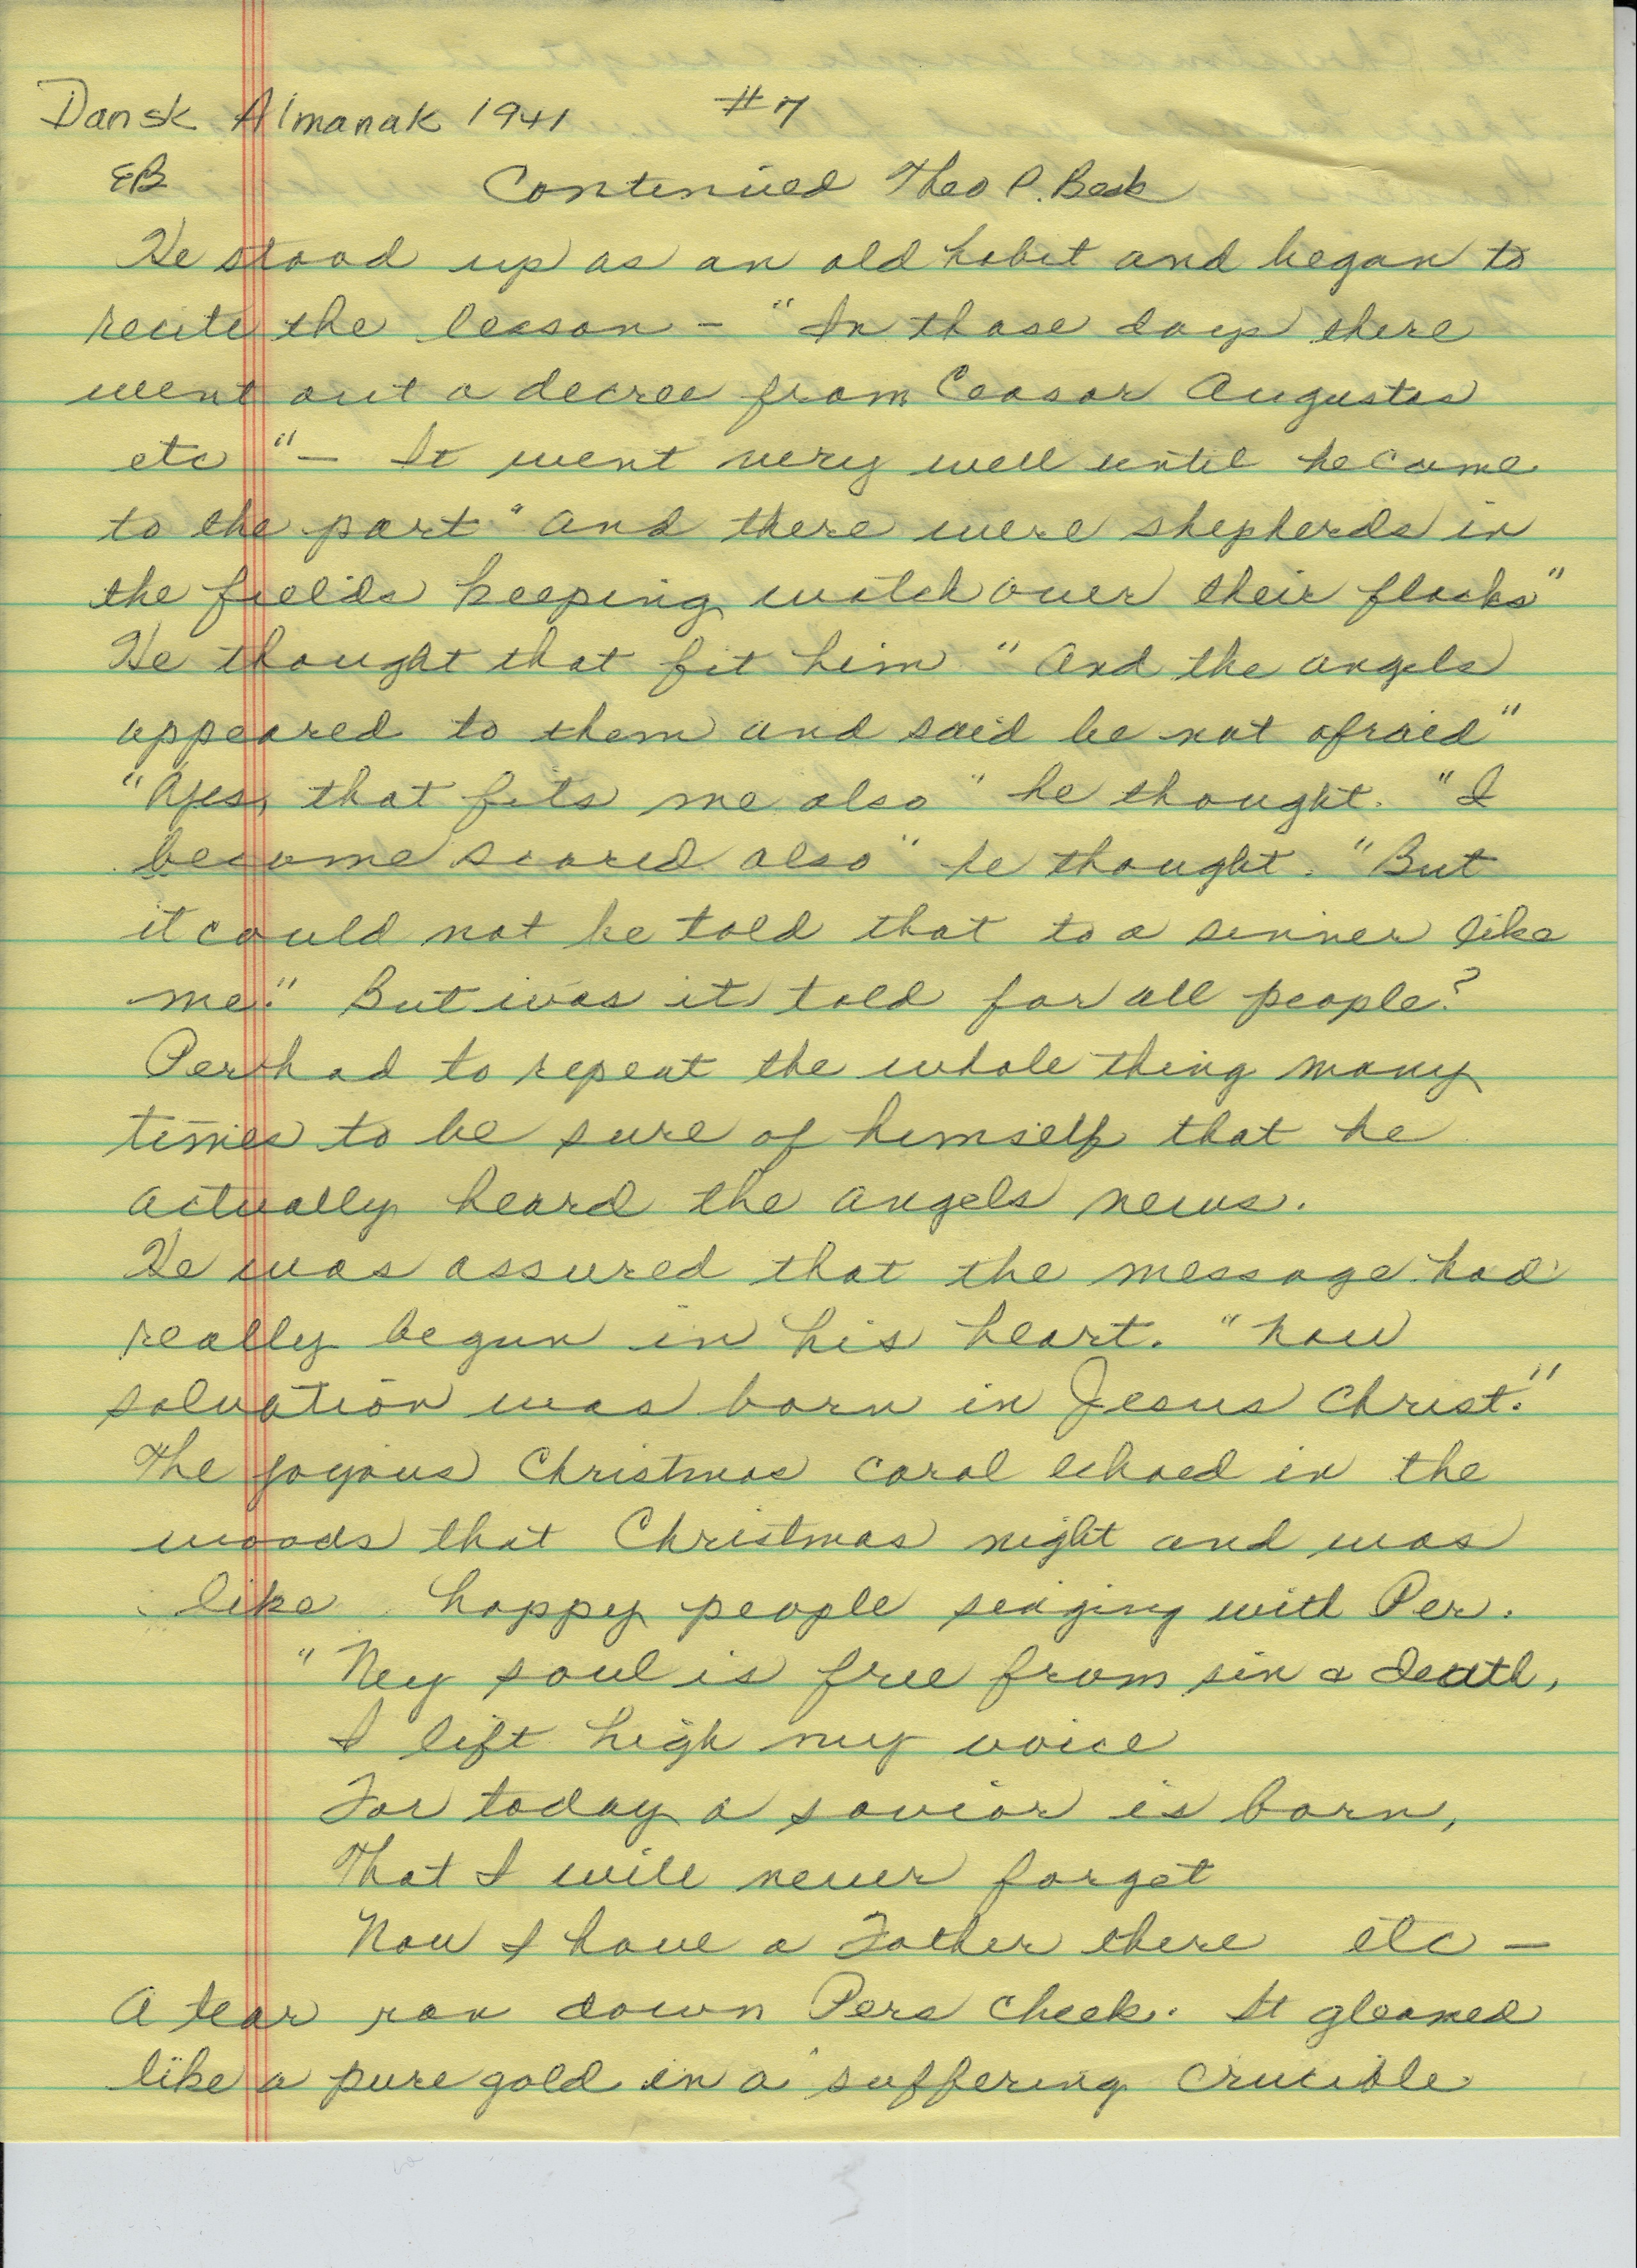 Dansk Almanak 1941 #7
EB Continued Theo P. Beck
He stood up as an old habit and began to
recite the lesson – "In those days there
went out a decree from Ceasar Augustus
etc" – It went very well until he came
to the part "and there were shepherds in
the fields keeping watch over their flocks"
He thought that fit him "And the angels
appeared to them and said be not afraid"
"Ayes, that fits me also" he thought. "I
become scared also" he thought. "But
it could not be told that to a sinner like
me." But was it told for all people?
Per had to repeat the whole thing many
times to be sure of himself that he
actually heard the angels news.
He was assured that the message had
really begun in his heart. "Now
salvation was born in Jesus Christ."
The joyous Christmas carol echoed in the
woods that Christmas night and was
like happy people singing with Per.
"My soul is free from sin & death,
I lift high my voice
For today a savior is born,
That I will never forget
Now I have a Father there etc –
A tear ran down Pers cheek. It gleamed
like a pure gold in a suffering crucible